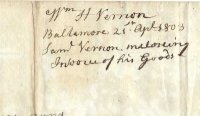 Wm H Vernon
Baltimore 21st Apl 1803
Saml Vernon. inclosing
Invoice of his Goods